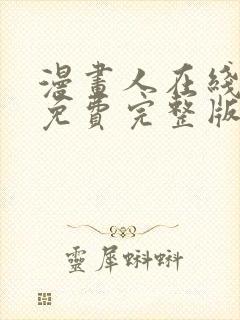 漫畫人在綫
免費完整版
靈犀蝌蝌